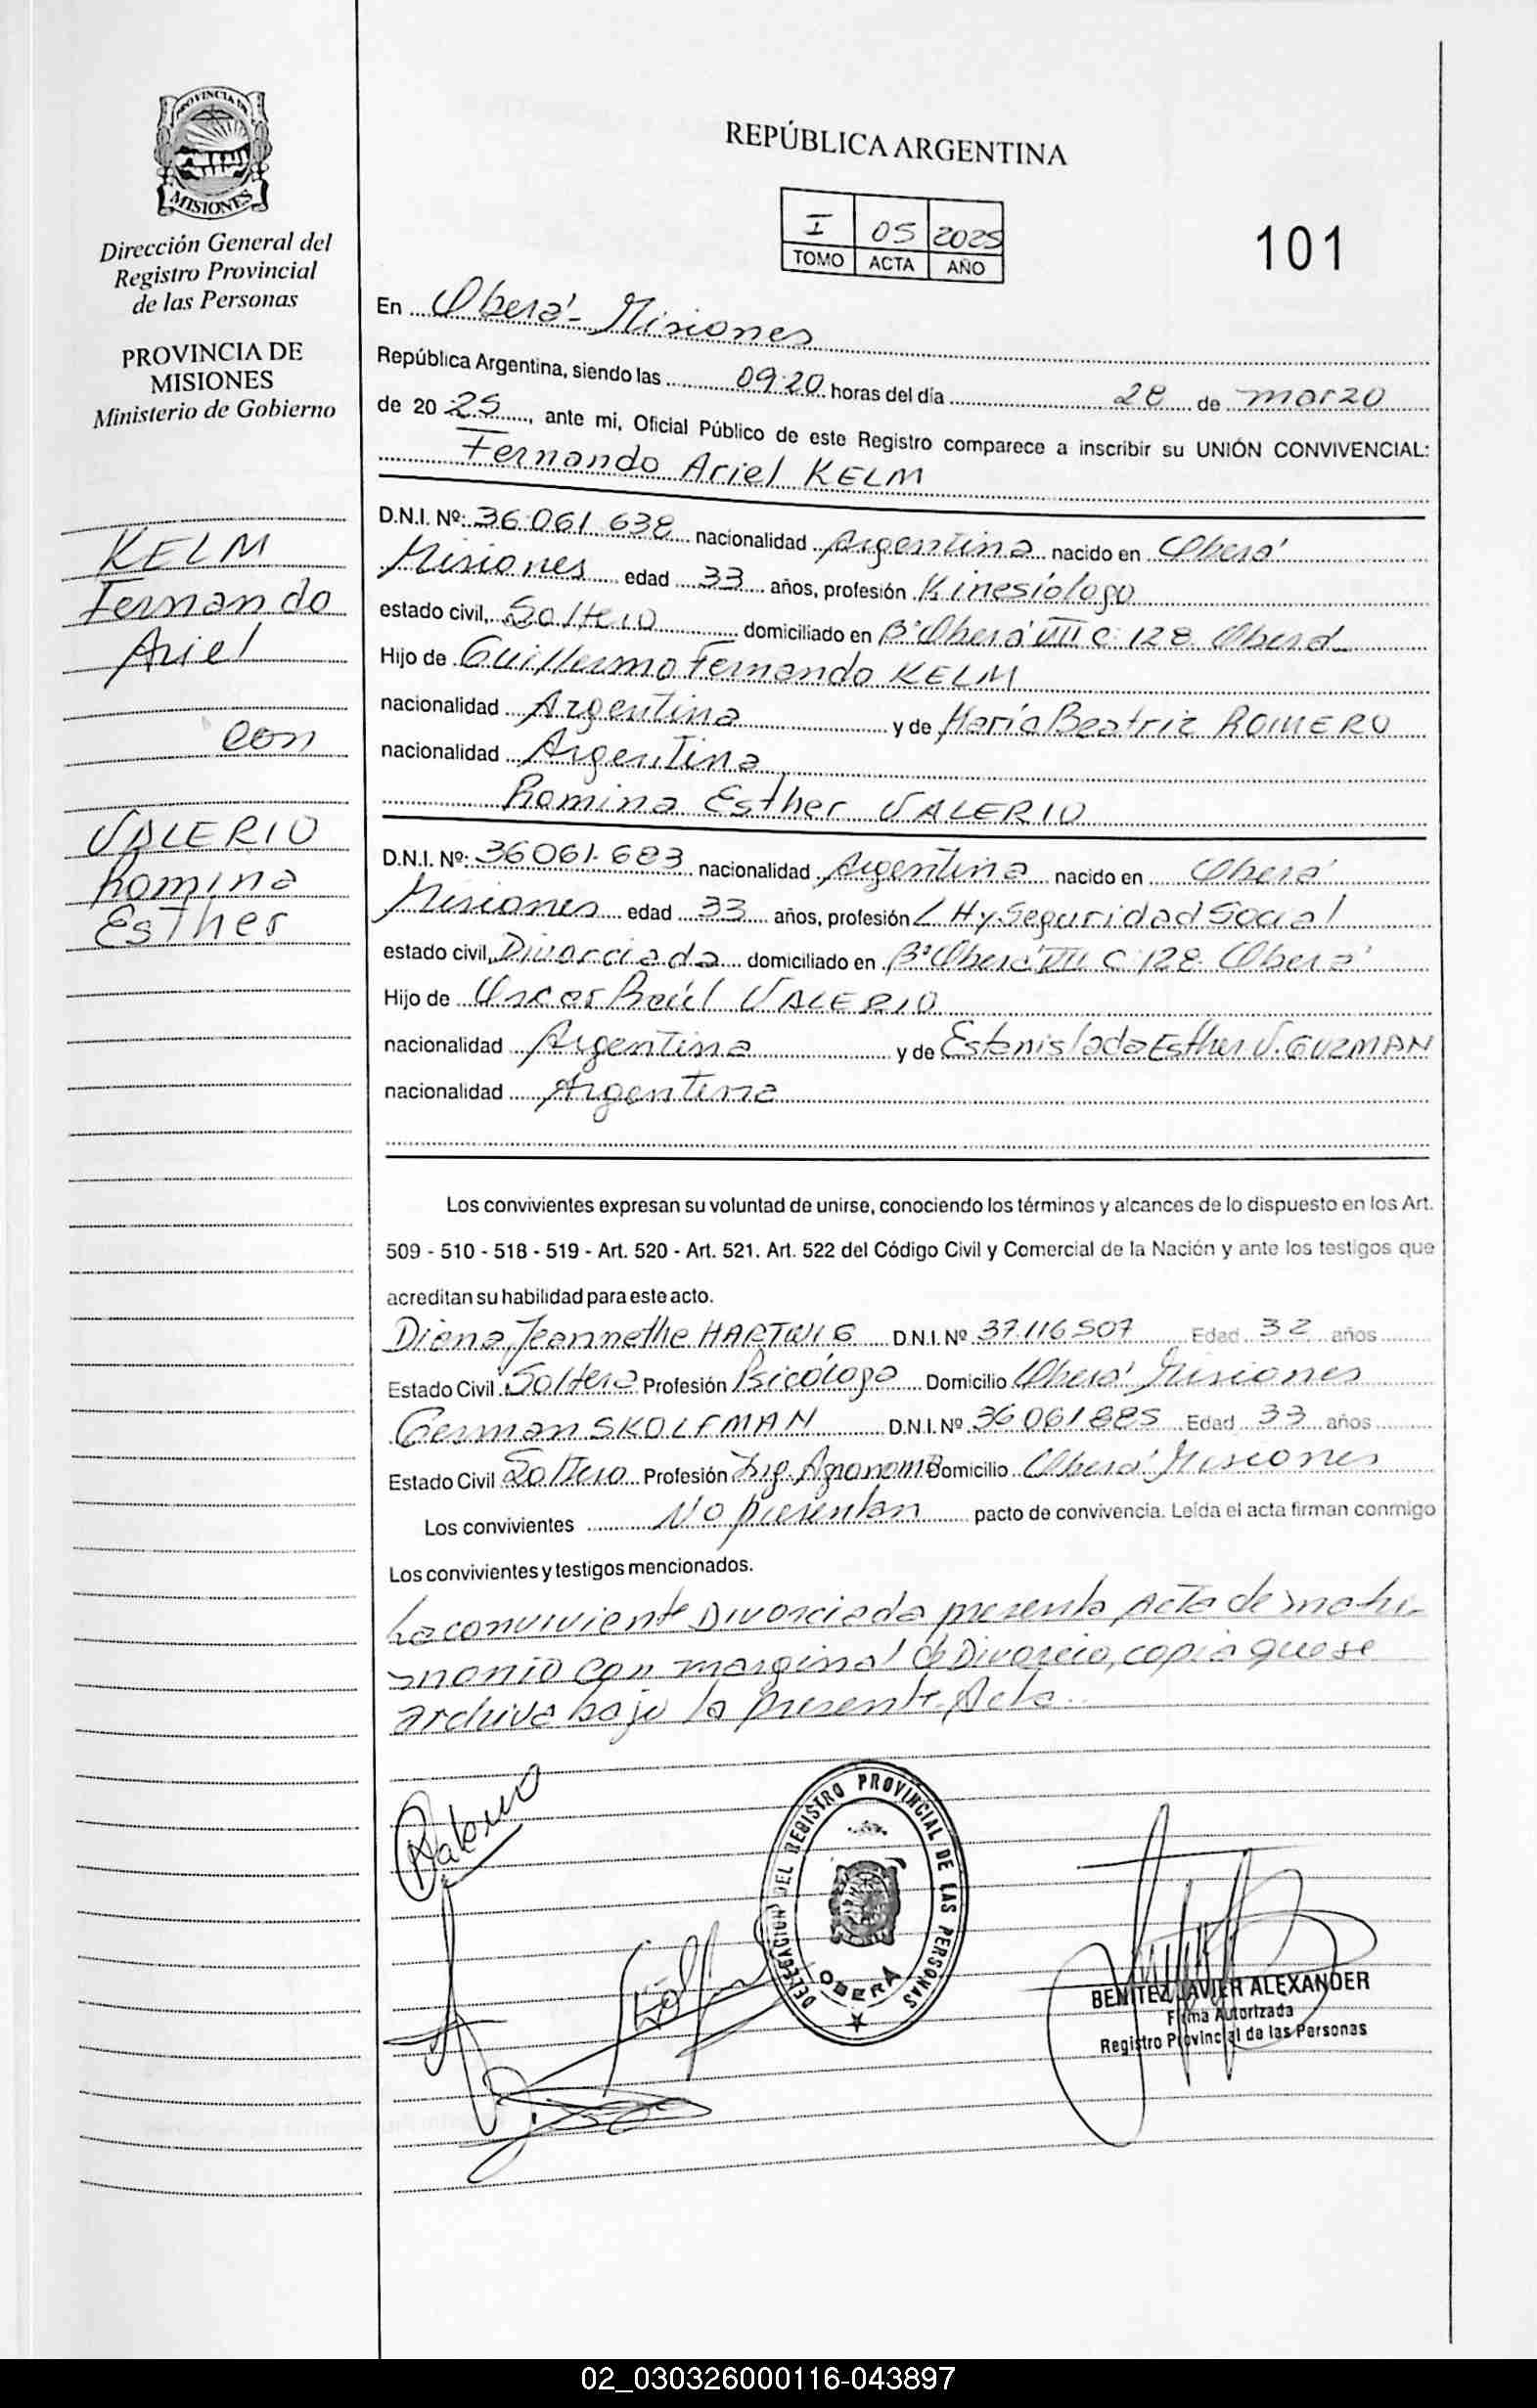 PROVINCIA DE
MISIONES
Dirección General del
Registro Provincial
de las Personas
PROVINCIA DE
MISIONES
Ministerio de Gobierno
KELM
Fernando
Ariel
con
VALERIO
Romina
Esther
REPÚBLICA ARGENTINA
I 05 2025
TOMO ACTA AÑO
101
En Oberá - Misiones
República Argentina, siendo las 09:20 horas del día 28 de marzo
de 20 25, ante mi, Oficial Público de este Registro comparece a inscribir su UNIÓN CONVIVENCIAL:
Fernando Ariel KELM
D.N.I. Nº: 36.061.638 nacionalidad Argentina nacido en Oberá
Misiones edad 33 años, profesión Kinesiólogo
estado civil, Soltero domiciliado en Bº Oberá VII C: 128 Oberá
Hijo de Guillermo Fernando KELM
nacionalidad Argentina y de María Beatriz ROMERO
nacionalidad Argentina
Romina Esther VALERIO
D.N.I. Nº: 36061.683 nacionalidad Argentina nacido en Oberá
Misiones edad 33 años, profesión L.H.y.Seguridad Social
estado civil, Divorciada domiciliado en Bº Oberá VII C: 128 Oberá
Hijo de Oscar Raúl VALERIO
nacionalidad Argentina y de Estanislada Esther V. GUZMAN
nacionalidad Argentina
Los convivientes expresan su voluntad de unirse, conociendo los términos y alcances de lo dispuesto en los Art.
509 - 510 - 518 - 519 - Art. 520 - Art. 521. Art. 522 del Código Civil y Comercial de la Nación y ante los testigos que
acreditan su habilidad para este acto.
Diana Jeannethe HARTWIG D.N.I. Nº 37.116507 Edad 32 años
Estado Civil Soltera Profesión Psicóloga Domicilio Oberá Misiones
German SKOLFMAN D.N.I. Nº 36 061885 Edad 33 años
Estado Civil Soltero Profesión Ing. Agronomo Domicilio Oberá Misiones
Los convivientes No presentan pacto de convivencia. Leída el acta firman conmigo
Los convivientes y testigos mencionados.
La conviviente Divorciada presenta Acta de matri-
monio con marginal de Divorcio, copia que se
archiva bajo la presente Acta.
DELEGACION DEL REGISTRO PROVINCIAL DE LAS PERSONAS
OBERA
BENITEZ JAVIER ALEXANDER
Firma Autorizada
Registro Provincial de las Personas
02_030326000116-043897